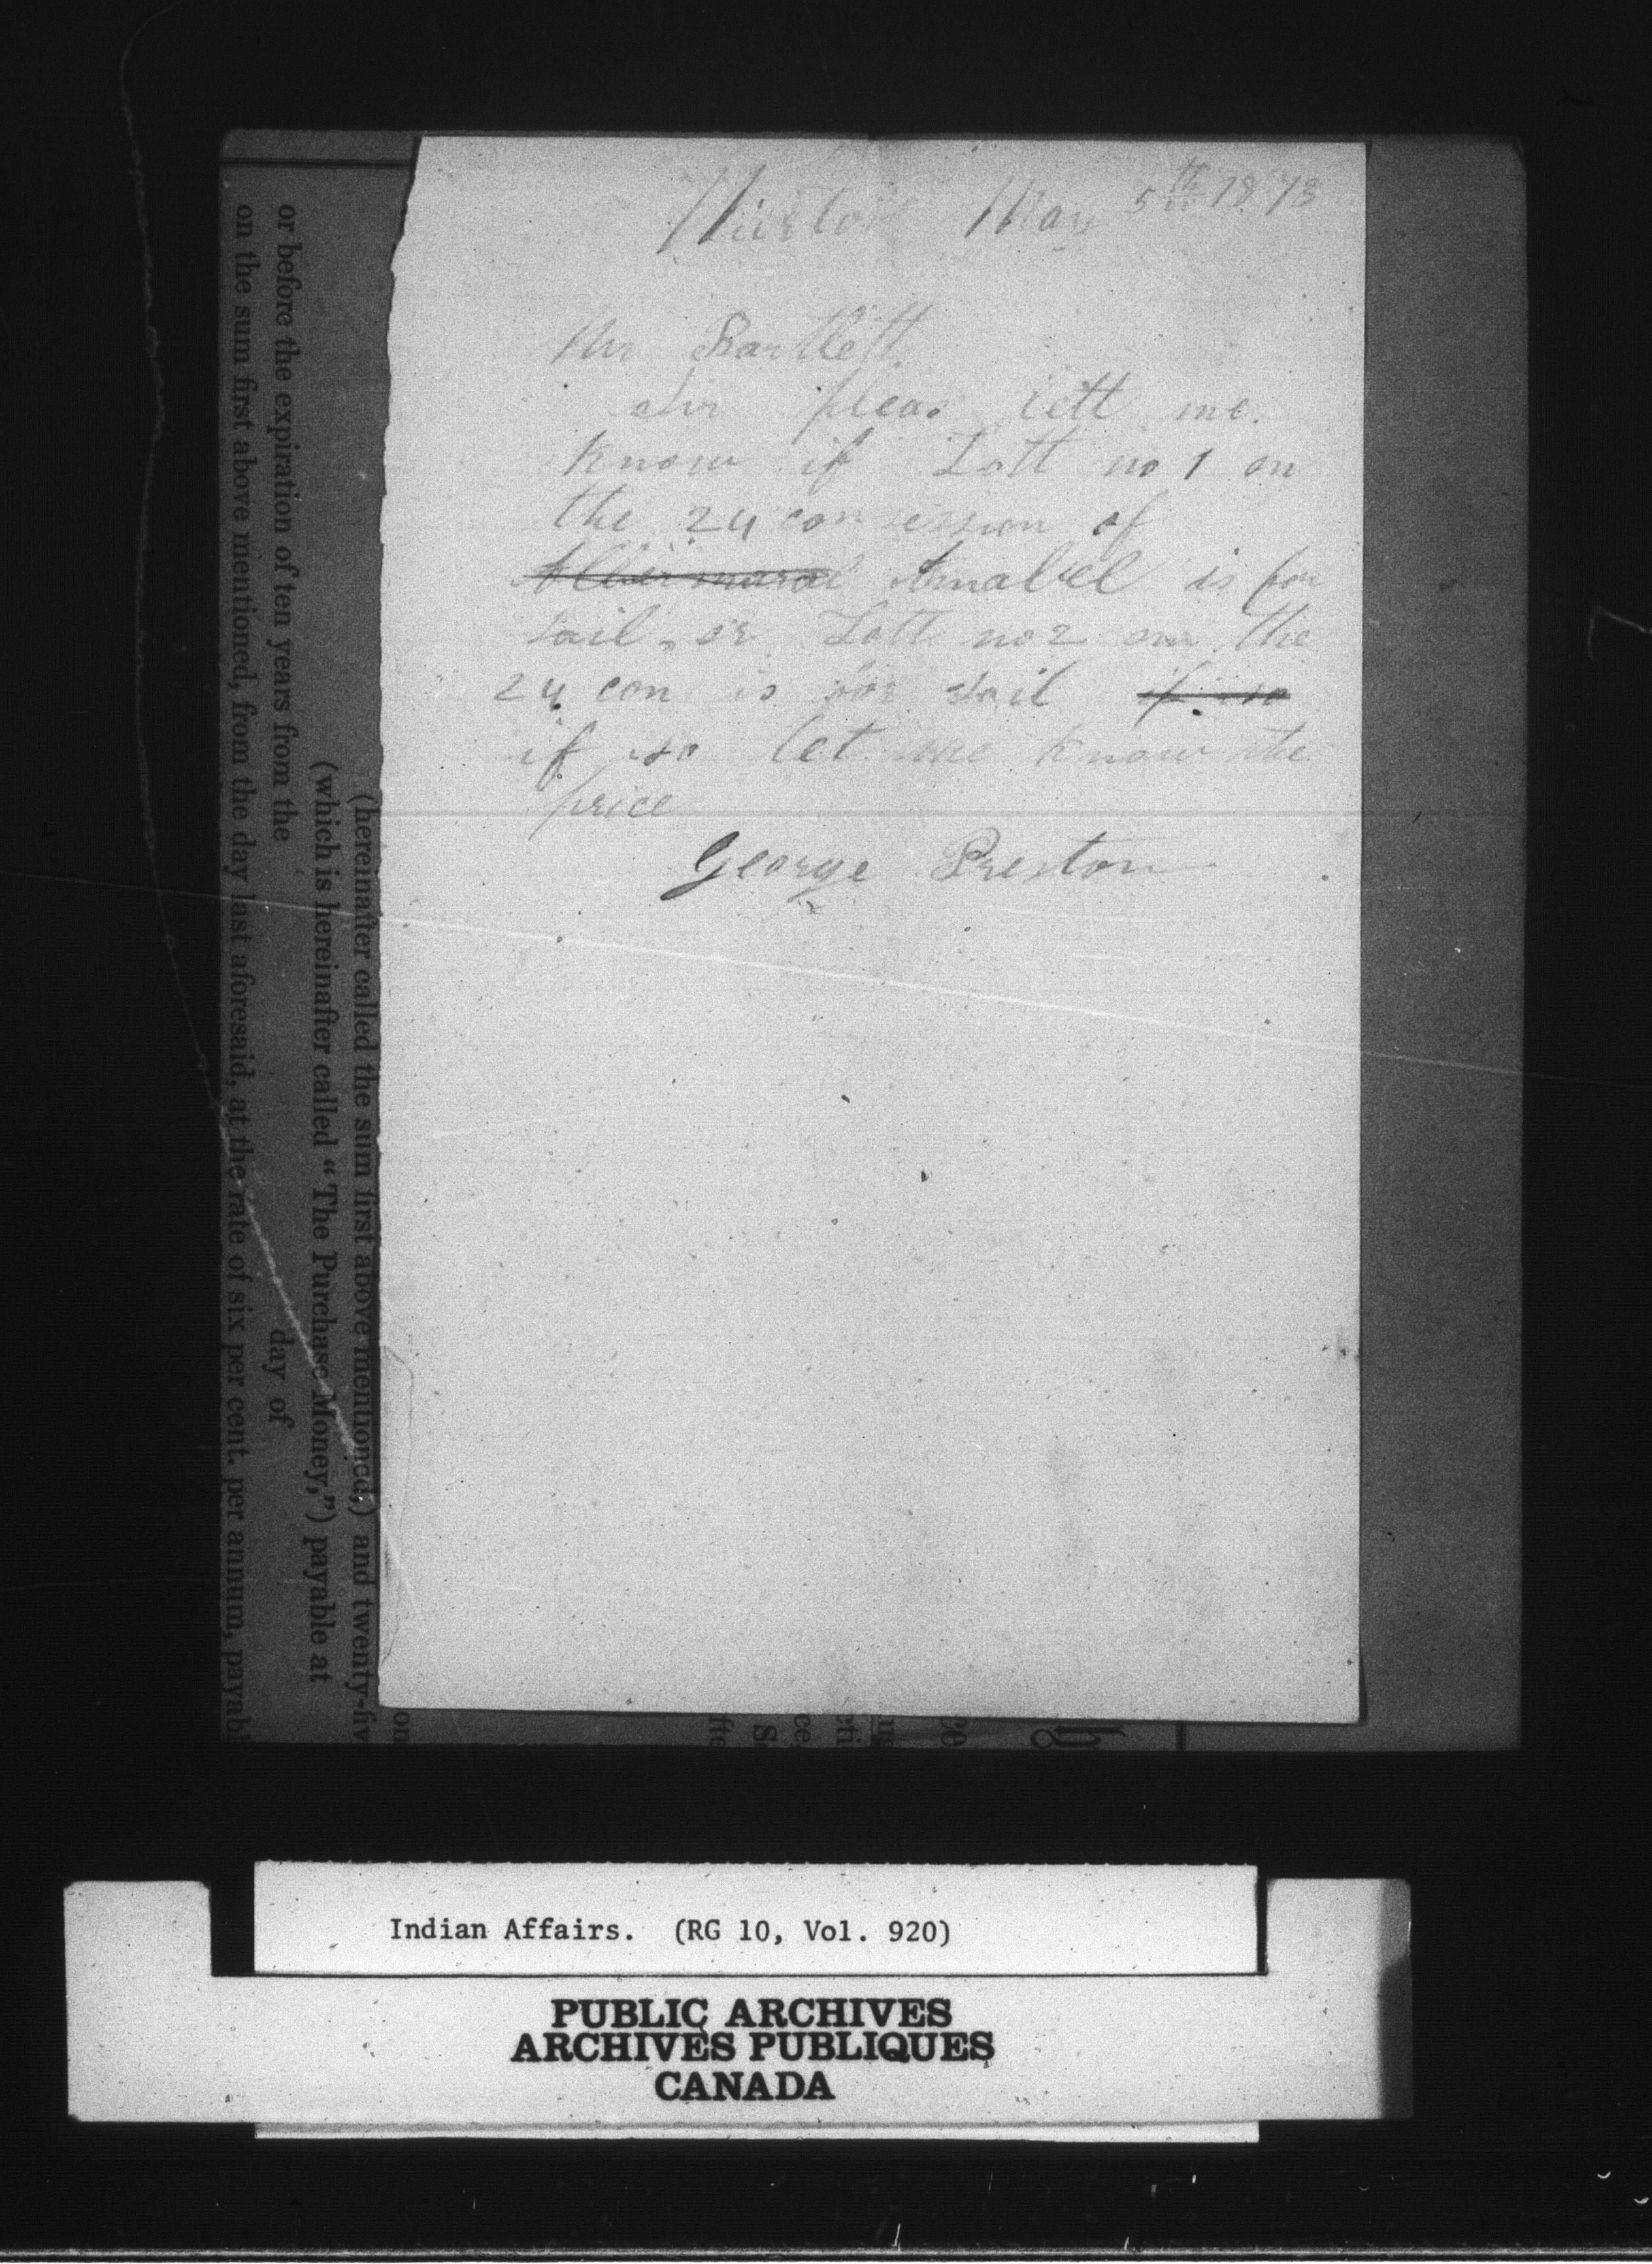 May 5th 1873
Mr Bartlett
Sir pleas lett me
know if Lott no 1 on
the 24 consession of
Amabel is for
sail, or Lott no 2 on the
24 con is for sail if so
if so let me know the
price
George Preston
or before the expiration of ten years from the day of
on the sum first above mentioned, from the day last aforesaid, at the rate of six per cent. per annum, payabl
(which is hereinafter called "The Purchase Money,") payable at
(hereinafter called the sum first above mentioned,) and twenty-fiv
on
Indian Affairs. (RG 10, Vol. 920)
PUBLIC ARCHIVES
ARCHIVES PUBLIQUES
CANADA